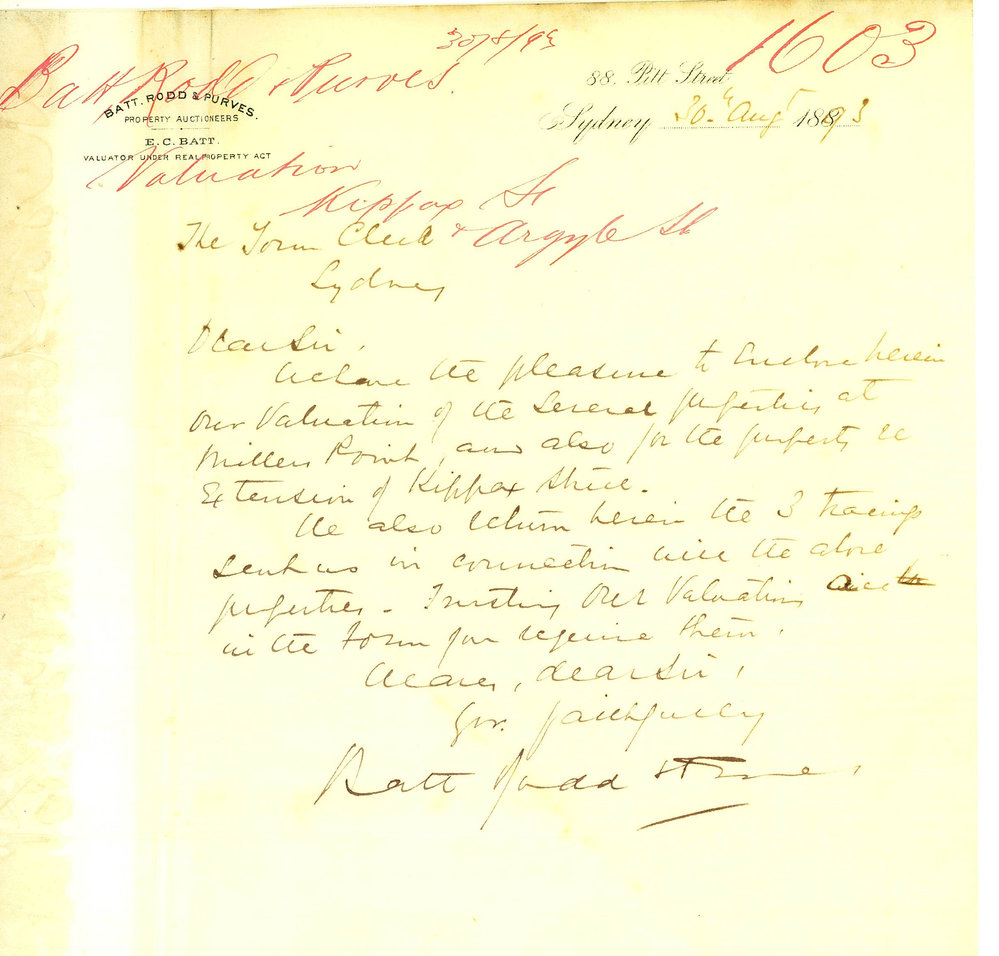 30/8/93
1603
Batt Rodd & Purves.
88. Pitt Street,
BATT. RODD & PURVES.
PROPERTY AUCTIONEERS
Sydney 30th Augt 1893
E. C. BATT.
VALUATOR UNDER REAL PROPERTY ACT
Valuation
Kippax St
& Argyle St
The Town Clerk
Sydney
Dear Sir,
We have the pleasure to enclose herein
our Valuation of the several properties at
Millers Point, and also for the property re
Extension of Kippax Street.
We also return herein the 3 tracings
sent us in connection with the above
properties - Trusting our Valuations are
in the form you require them,
We are, dear Sir,
Yrs. faithfully
Batt Rodd & Purves.